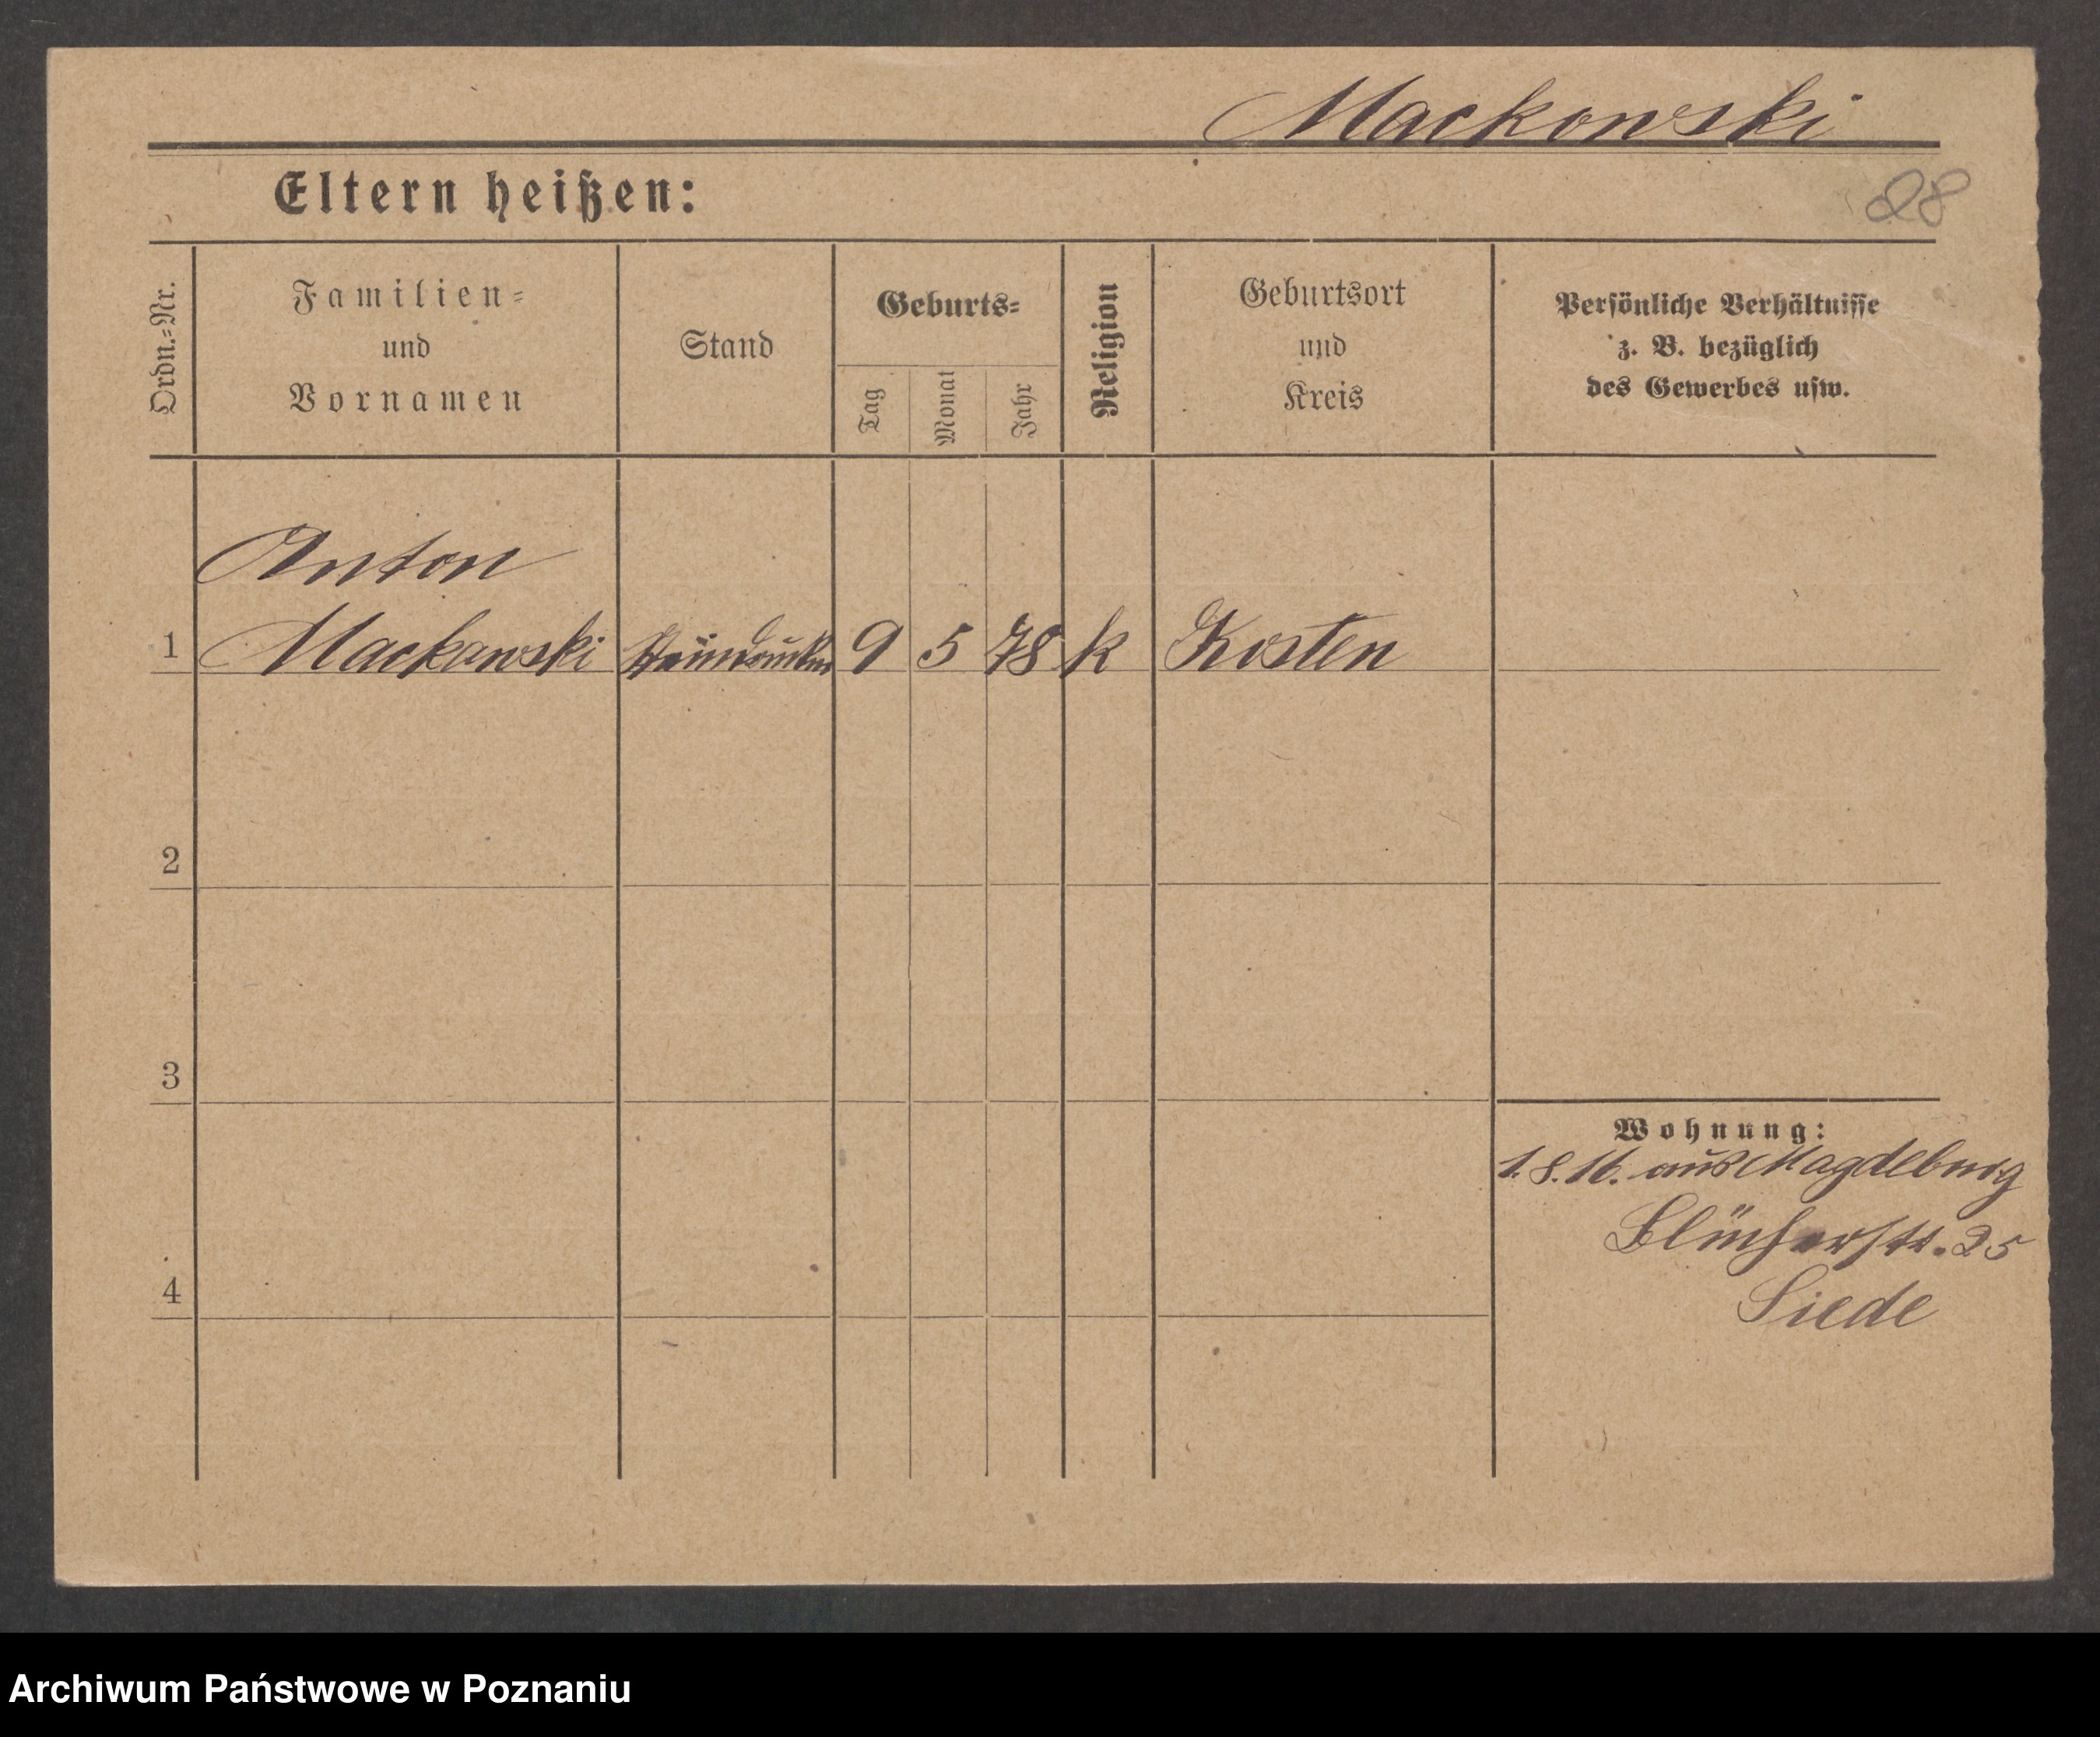 Mackowski
Eltern heißen:
28
Ordn.-Nr.
Familien-
und
Vornamen
Stand
Geburts-
Tag
Monat
Jahr
Religion
Geburtsort
und
Kreis
Persönliche Verhältnisse
z. B. bezüglich
des Gewerbes usw.
Anton
1 Mackowski 9 5 78 k Kosten
2
3
4
Wohnung:
1.8.16. aus Magdeburg
Blücherstr. 25
Siede
Archiwum Państwowe w Poznaniu